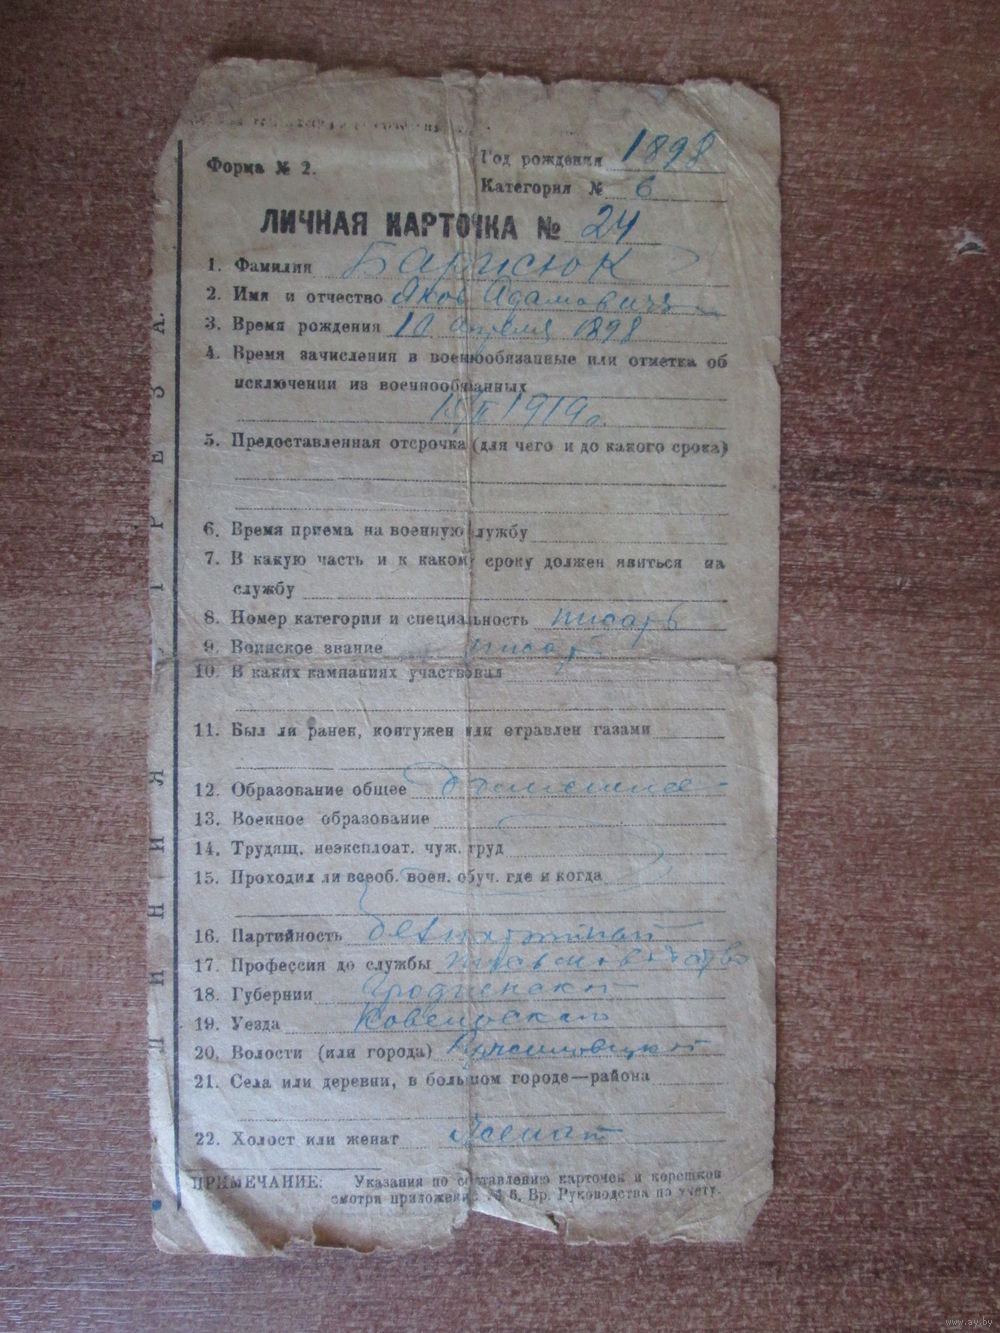 Год рождения 1898
Форма № 2.
Категория № 6
ЛИЧНАЯ КАРТОЧКА № 24
1. Фамилия Барисюк
2. Имя и отчество Яков Адамович
3. Время рождения 10 апреля 1898
4. Время зачисления в военнообязанные или отметка об
исключении из военнообязанных
1919 г.
5. Предоставленная отсрочка (для чего и до какого срока)
6. Время приема на военную службу
7. В какую часть и к каком сроку должен явиться на
службу
8. Номер категории и специальность писарь
9. Воинское звание писарь
10. В каких кампаниях участвовал
11. Был ли ранен, контужен или отравлен газами
12. Образование общее
13. Военное образование
14. Трудящ. неэксплоат. чуж. труд
15. Проходил ли всеоб. воен. обуч. где и когда
16. Партийность беспартийный
17. Профессия до службы письмоводство
18. Губернии Гродненской
19. Уезда
20. Волости (или города)
21. Села или деревни, в большом городе—района
22. Холост или женат Женат
ПРИМЕЧАНИЕ: Указания по составлению карточек и корешков
смотри приложение № 6, Вр. Руководства по учету.
ЛИНИЯ ОТРЕЗА.
www.ay.by